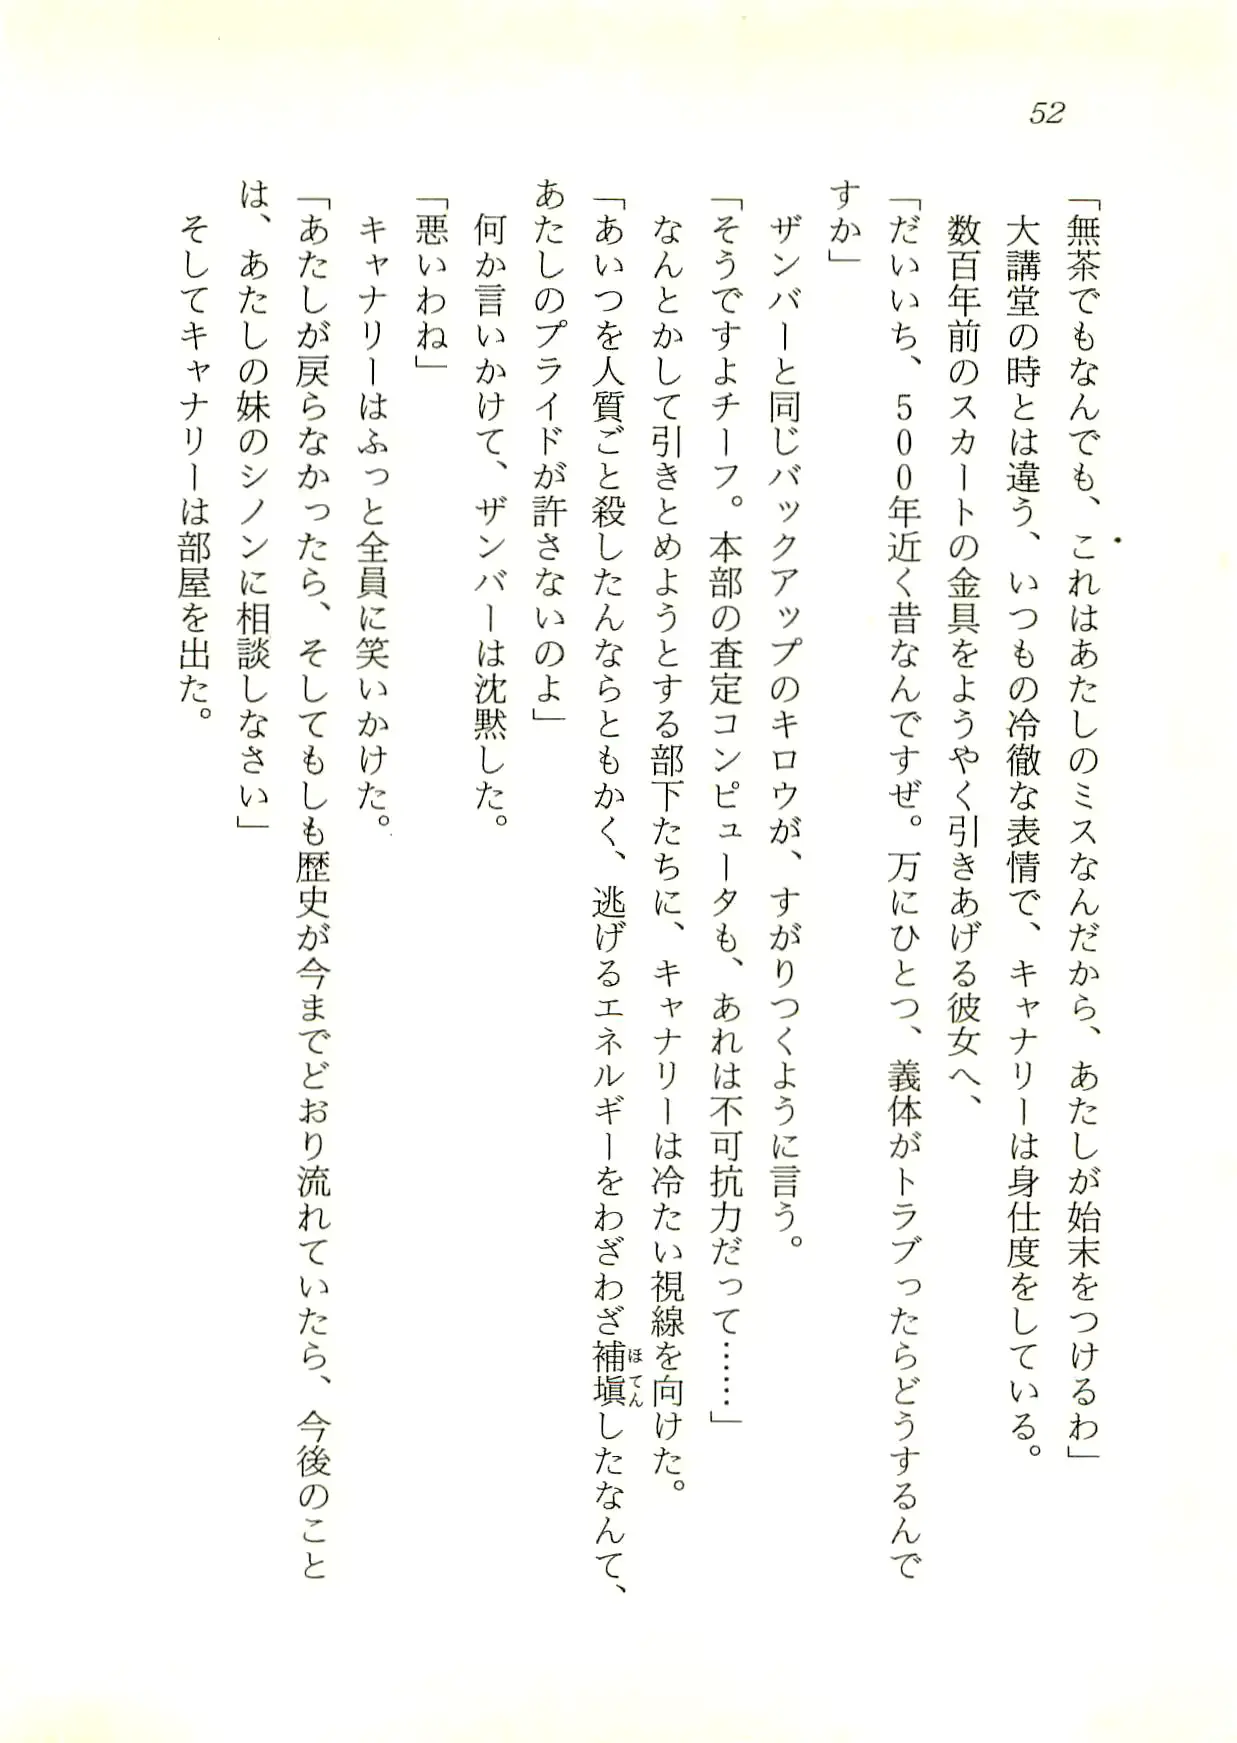 52
「無茶でもなんでも、これはあたしのミスなんだから、あたしが始末をつけるわ」
大講堂の時とは違う、いつもの冷徹な表情で、キャナリーは身仕度をしている。
数百年前のスカートの金具をようやく引きあげる彼女へ、
「だいいち、500年近く昔なんですぜ。万にひとつ、義体がトラブったらどうするんで
すか」
ザンバーと同じバックアップのキロウが、すがりつくように言う。
「そうですよチーフ。本部の査定コンピュータも、あれは不可抗力だって……」
なんとかして引きとめようとする部下たちに、キャナリーは冷たい視線を向けた。
「あいつを人質ごと殺したんならともかく、逃げるエネルギーをわざわざ補塡したなんて、
あたしのプライドが許さないのよ」
何か言いかけて、ザンバーは沈黙した。
「悪いわね」
キャナリーはふっと全員に笑いかけた。
「あたしが戻らなかったら、そしてもしも歴史が今までどおり流れていたら、今後のこと
は、あたしの妹のシノンに相談しなさい」
そしてキャナリーは部屋を出た。